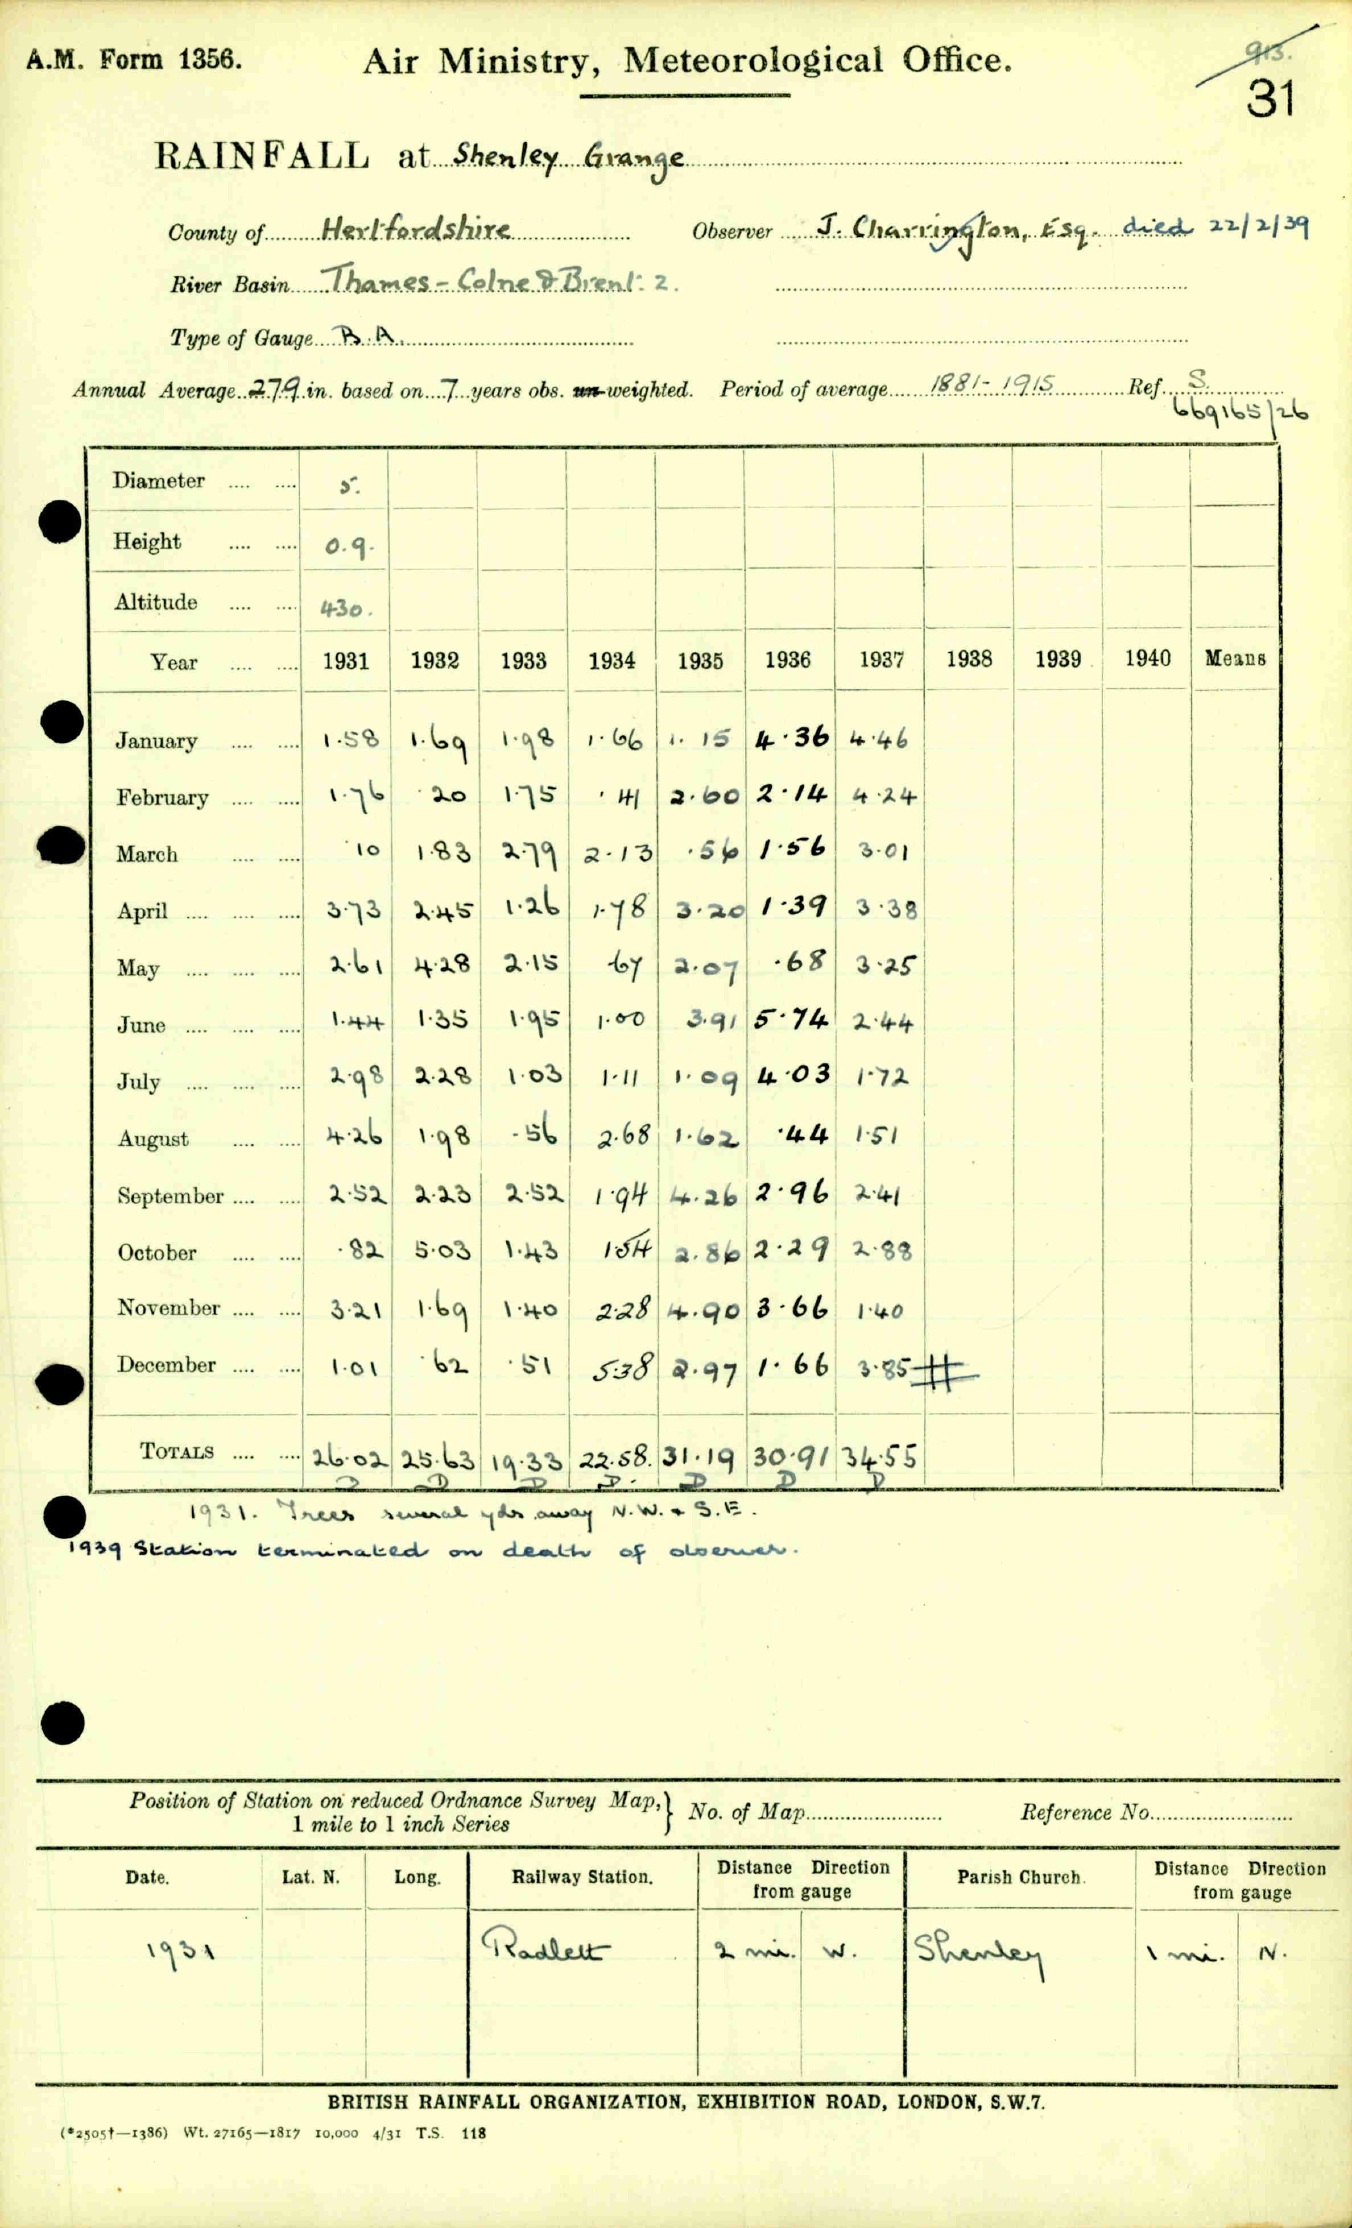 A.M. Form 1356.
Air Ministry, Meteorological Office.
913.
31
RAINFALL at Shenley Grange
County of Hertfordshire Observer J. Charrington, Esq. died 22/2/39
River Basin Thames - Colne & Brent. 2.
Type of Gauge B.A.
Annual Average 27.9 in. based on 7 years obs. un-weighted. Period of average 1881-1915 Ref. S.
669165/26
Diameter .... .... 5.
Height .... .... 0.9.
Altitude .... .... 430.
Year .... .... 1931 1932 1933 1934 1935 1936 1937 1938 1939 1940 Means
January .... .... 1.58 1.69 1.98 1.66 1.15 4.36 4.46
February .... .... 1.76 .20 1.75 .41 2.60 2.14 4.24
March .... .... .10 1.83 2.79 2.13 .56 1.56 3.01
April .... .... .... 3.73 2.45 1.26 1.78 3.20 1.39 3.38
May .... .... .... 2.61 4.28 2.15 .67 2.07 .68 3.25
June .... .... .... 1.44 1.35 1.95 1.00 3.91 5.74 2.44
July .... .... .... 2.98 2.28 1.03 1.11 1.09 4.03 1.72
August .... .... 4.26 1.98 .56 2.68 1.62 .44 1.51
September .... .... 2.52 2.23 2.52 1.94 4.26 2.96 2.41
October .... .... .82 5.03 1.43 1.54 2.86 2.29 2.88
November .... .... 3.21 1.69 1.40 2.28 4.90 3.66 1.40
December .... .... 1.01 .62 .51 5.38 2.97 1.66 3.85
TOTALS .... .... 26.02 25.63 19.33 22.58. 31.19 30.91 34.55
D D D D. D D D
1931. Trees several yds away N.W. & S.E.
1939 Station terminated on death of observer.
Position of Station on reduced Ordnance Survey Map, } No. of Map Reference No.
1 mile to 1 inch Series
Date. Lat. N. Long. Railway Station. Distance Direction from gauge Parish Church. Distance Direction from gauge
1931 Radlett 2 mi. W. Shenley 1 mi. N.
BRITISH RAINFALL ORGANIZATION, EXHIBITION ROAD, LONDON, S.W.7.
(*2505†—1386) Wt. 27165—1817 10,000 4/31 T.S. 118